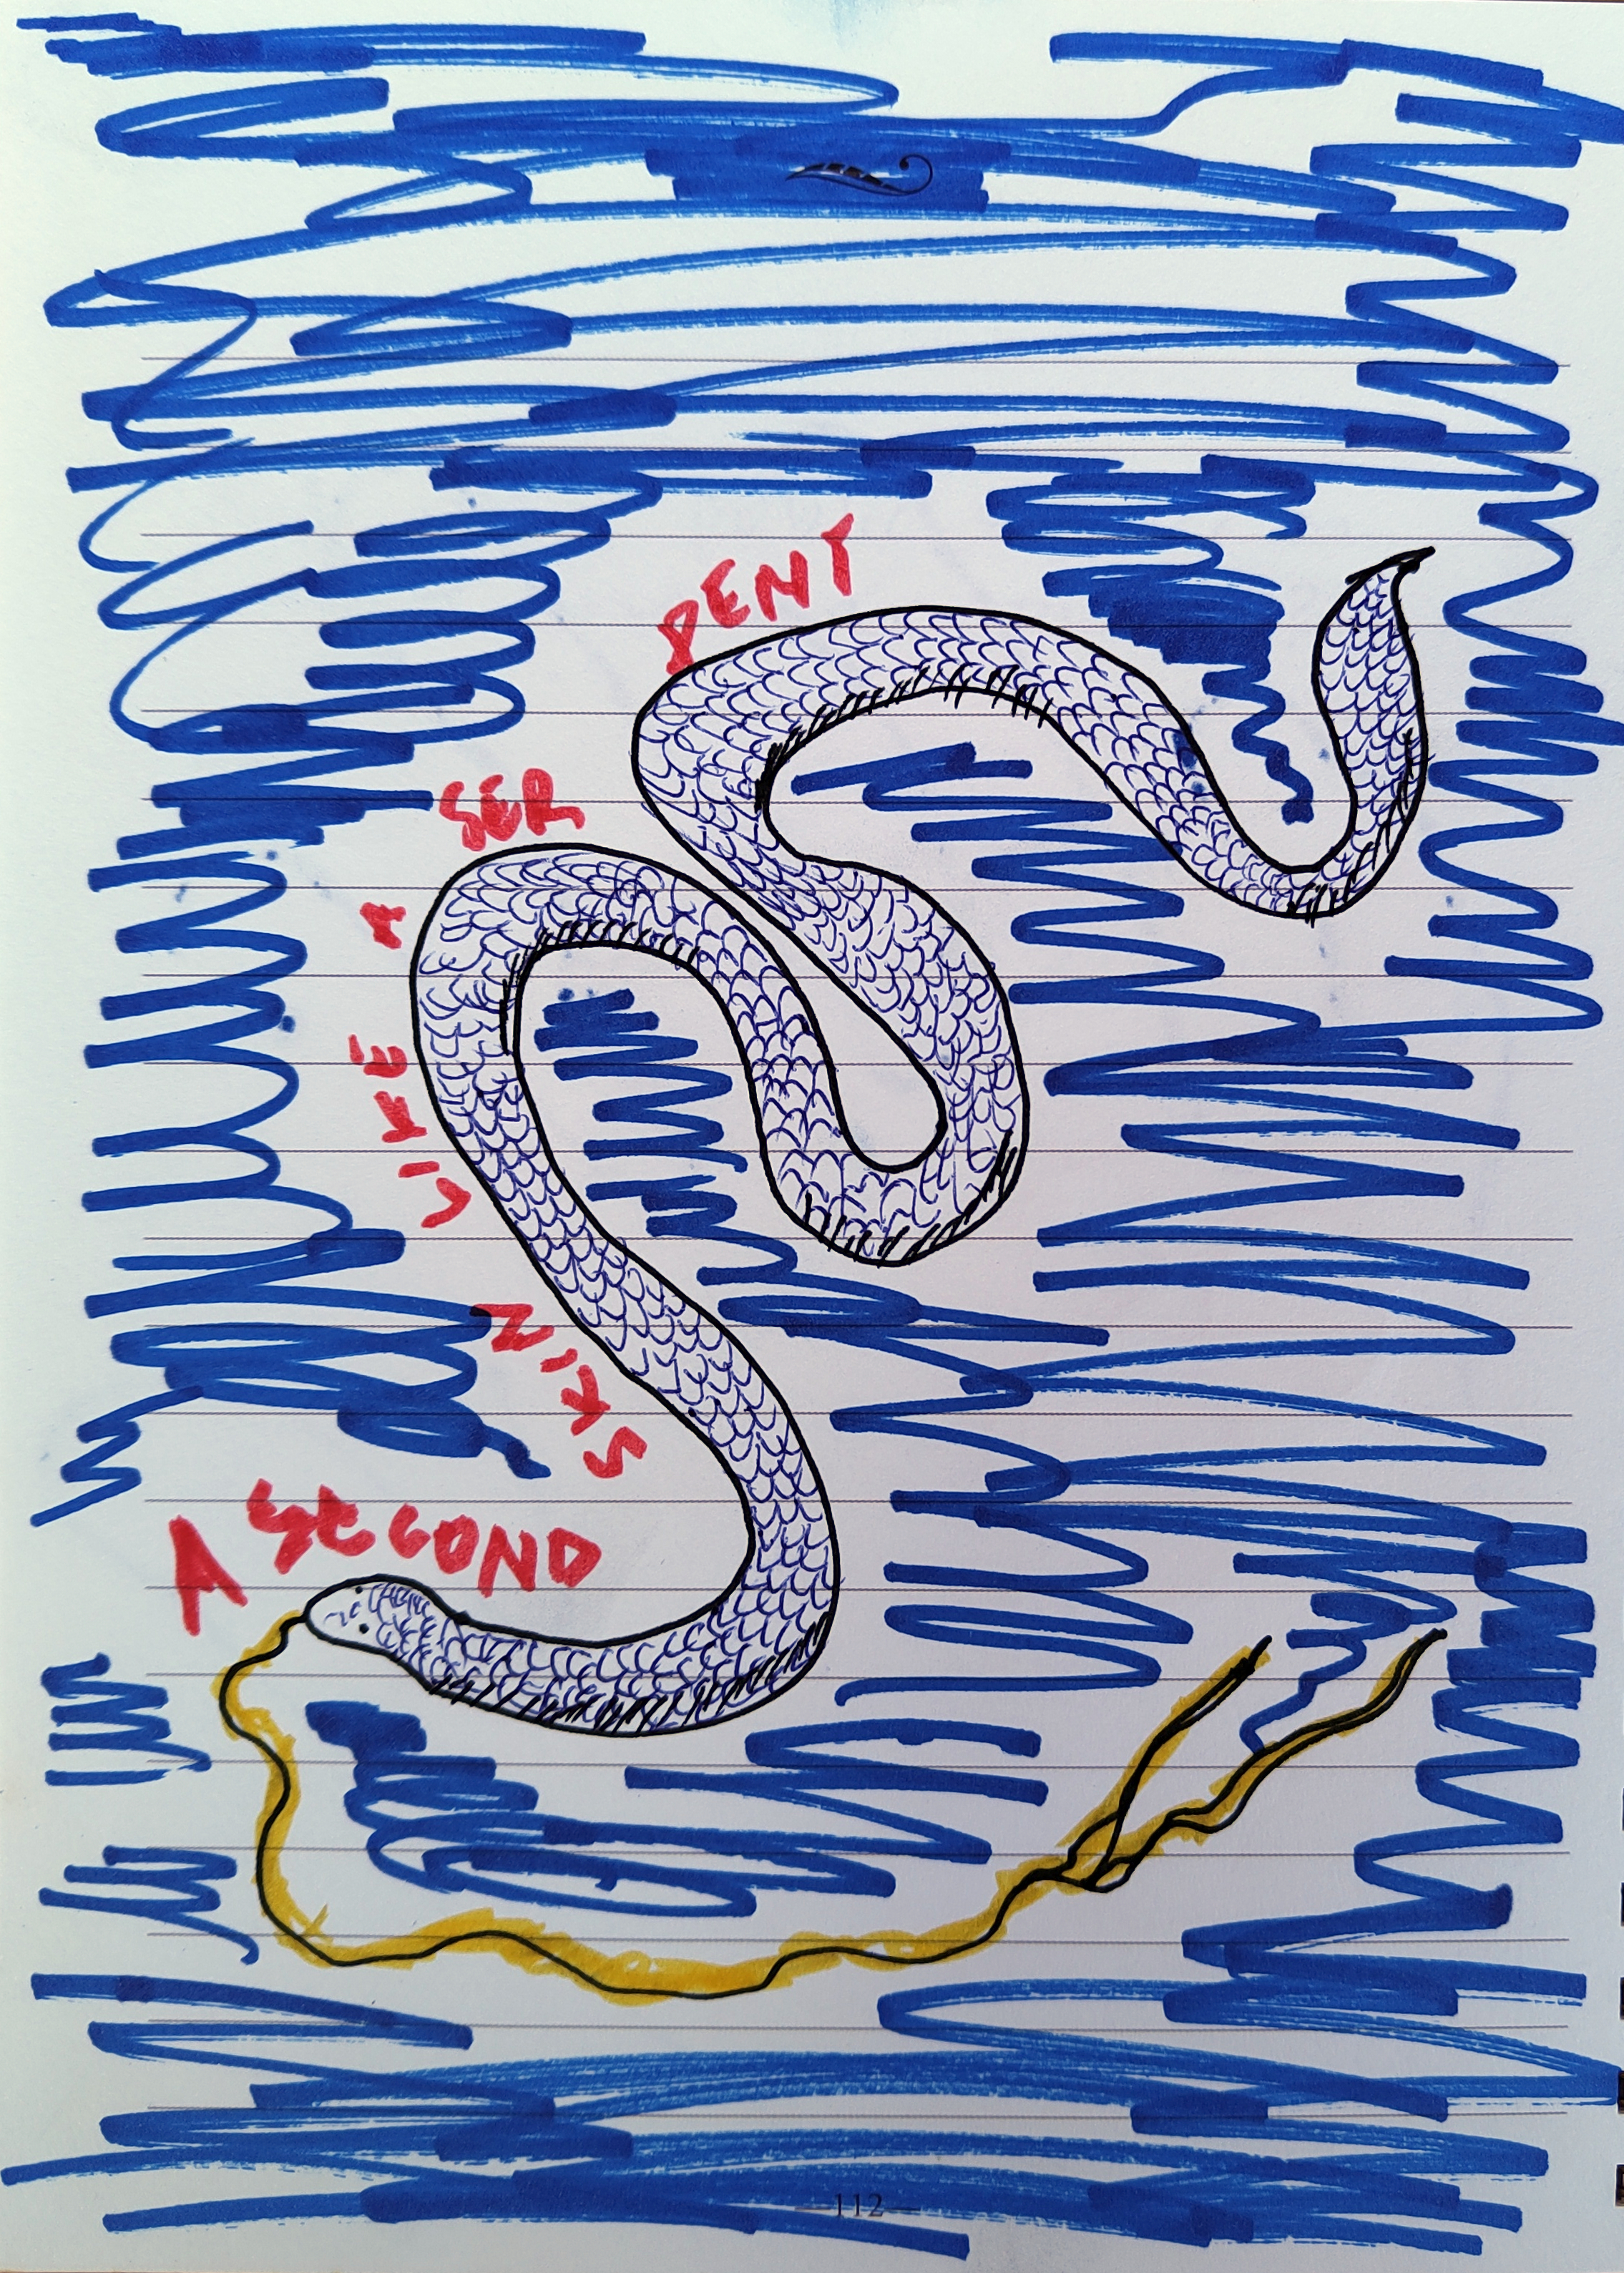 A SECOND
SKIN
LIKE
A
SER
PENT
112